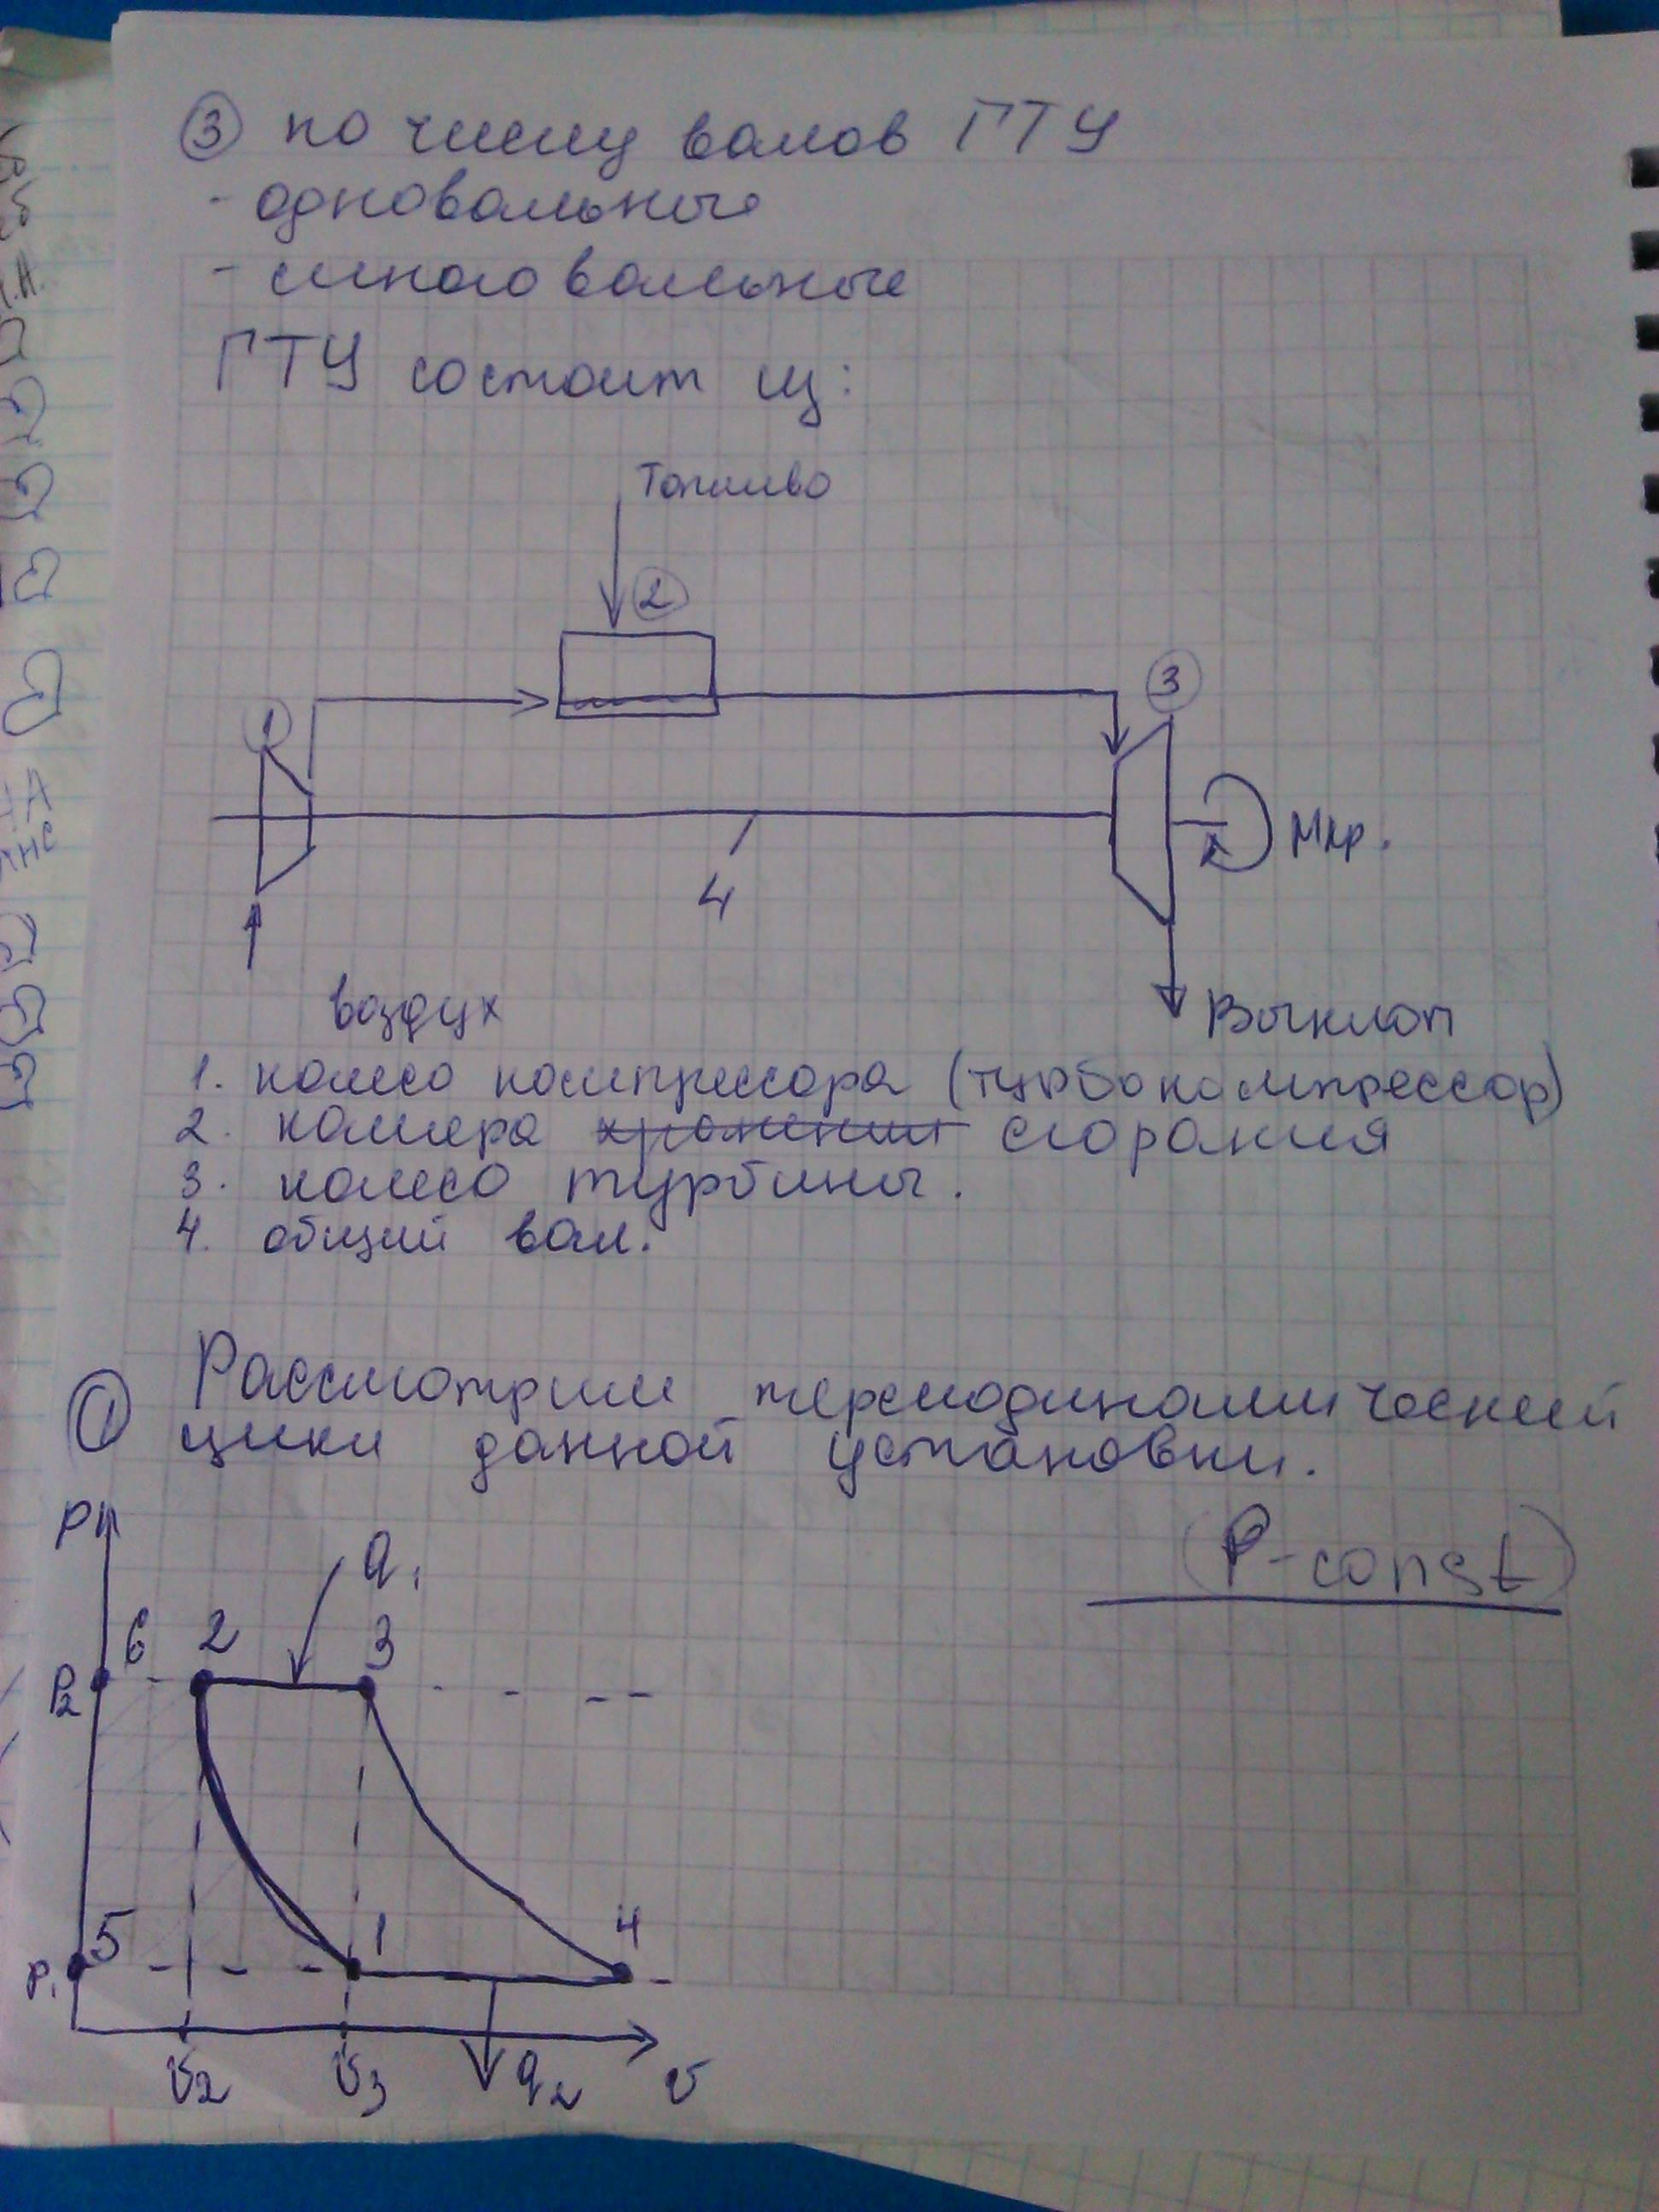 ③ по числу валов ГТУ
- одновальные
- многовальные
ГТУ состоит из:
Топливо
②
③
1
Мкр.
4
воздух
Выхлоп
1. колесо компрессора (турбокомпрессор)
2. камера хранения сгорания
3. колесо турбины.
4. общий вал.
① Рассмотрим термодинамический
цикл данной установки.
(P-const)
P
q₁
6 2 3
P₂
5 1 4
P₁
v₂ v₃ q₂ v